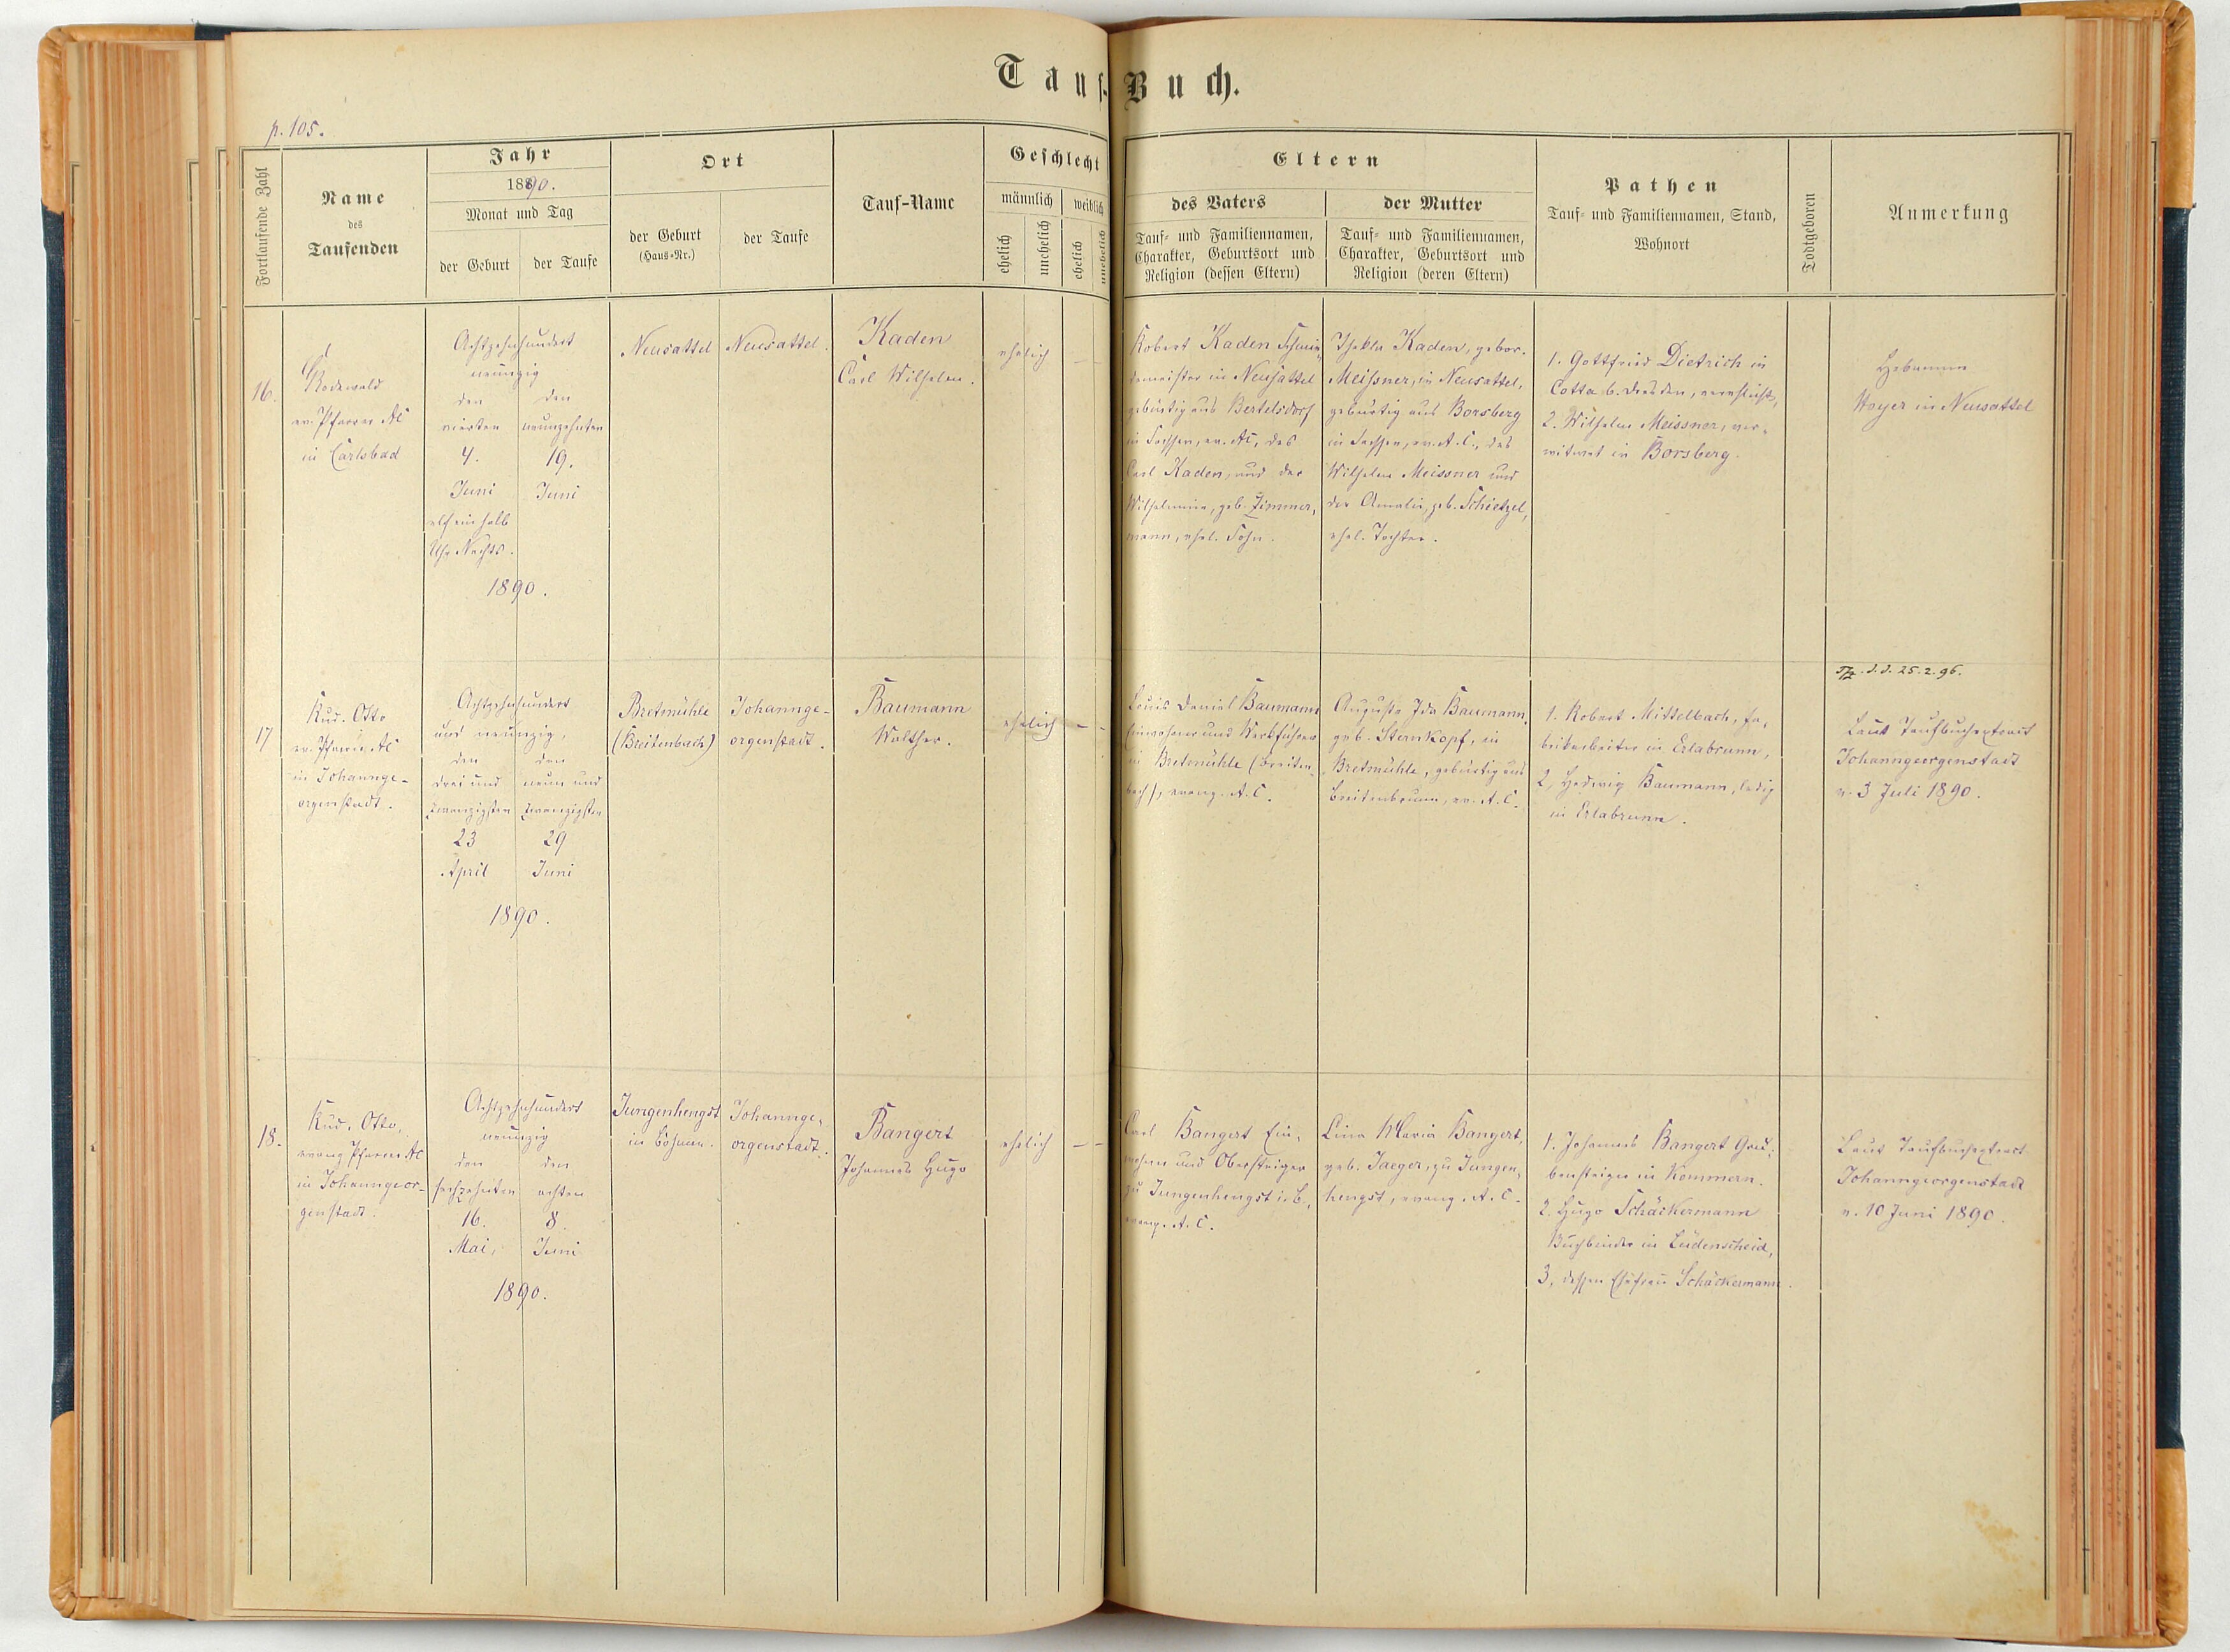 Tauf-Buch.
p. 105.
Fortlaufende Zahl
Name
des
Taufenden
Jahr
1890.
Monat und Tag
der Geburt
der Taufe
Ort
der Geburt
(Haus-Nr.)
der Taufe
Tauf-Name
Geschlecht
männlich
weiblich
ehelich
unehelich
ehelich
unehelich
Eltern
des Vaters
Tauf- und Familiennamen,
Charakter, Geburtsort und
Religion (dessen Eltern)
der Mutter
Tauf- und Familiennamen,
Charakter, Geburtsort und
Religion (deren Eltern)
Pathen
Tauf- und Familiennamen, Stand,
Wohnort
Todtgeboren
Anmerkung
16.
Rodewald
ev. Pfarrer AC
in Carlsbad
Achtzehnhundert
neunzig
den
vierten
4.
Juni
elf ein halb
Uhr Nachts.
den
neunzehnten
19.
Juni
1890.
Neusattel
Neusattel.
Kaden
Carl Wilhelm.
ehelich
—
Robert Kaden Schmie-
demeister in Neusattel
gebürtig aus Bertelsdorf
in Sachsen, ev. AC, des
Carl Kaden, und der
Wilhelmine, geb. Zimmer,
mann, ehel. Sohn.
Thekla Kaden, gebor.
Meissner, in Neusattel,
gebürtig aus Borsberg
in Sachsen, ev. A.C., des
Wilhelm Meissner und
der Amalie, geb. Schietzel,
ehel. Tochter.
1. Gottfried Dietrich in
Cotta b. Dresden, verehlicht,
2. Wilhelm Meissner, ver-
witwet in Borsberg.
Hebamme
Mayer in Neusattel
17
Rud. Otto
ev. Pfarrer AC
in Johannge-
orgenstadt.
Achtzehnhundert
und neunzig,
den
drei und
zwanzigsten
23
April
den
neun und
zwanzigsten
29
Juni
1890.
Bretmühle
(Breitenbach)
Johannge-
orgenstadt.
Baumann
Walther.
ehelich
—
Louis Daniel Baumann
Einwohner und Werkführer
in Bretmühle (Breiten-
bach), evang. A.C.
Auguste Ida Baumann,
geb. Sternkopf, in
Bretmühle, gebürtig aus
Breitenbrunn, ev. A.C.
1. Robert Mittelbach, Fa-
brikarbeiter in Erlabrunn,
2, Hedwig Baumann, ledig
in Erlabrunn.
d.d. 25.2.96.
Laut Taufbuchextract
Johanngeorgenstadt
v. 3 Juli 1890.
18.
Rud. Otto,
evang Pfarrer AC
in Johanngeor-
genstadt.
Achtzehnhundert
neunzig
den
sechzehnten
16.
Mai,
den
achten
8.
Juni
1890.
Jungenhengst
in Böhmen.
Johannge-
orgenstadt.
Bangert
Johannes Hugo
ehelich
—
Carl Bangert Ein-
wohner und Obersteiger
zu Jungenhengst i. B.,
evang. A.C.
Lina Maria Bangert,
geb. Jaeger, zu Jungen-
hengst, evang. A.C.
1. Johannes Bangert Gru-
bensteiger in Kommern.
2. Hugo Schäckermann
Buchbinder in Lüdenscheid,
3, dessen Ehefrau Schäckermann.
Laut Taufbuchextract
Johanngeorgenstadt
v. 10 Juni 1890.